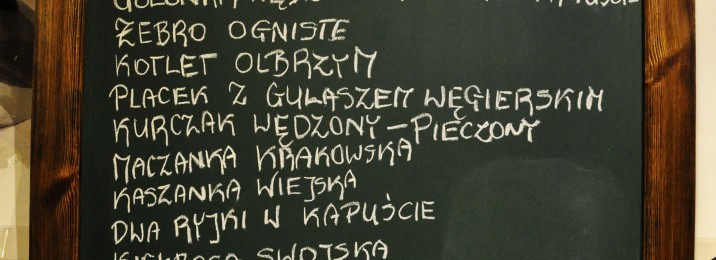 ŻEBRO OGNISTE
KOTLET OLBRZYM
PLACEK Z GULASZEM WĘGIERSKIM
KURCZAK WĘDZONY – PIECZONY
MACZANKA KRAKOWSKA
KASZANKA WIEJSKA
DWA RYJKI W KAPUŚCIE
KIEŁBASA SWOJSKA